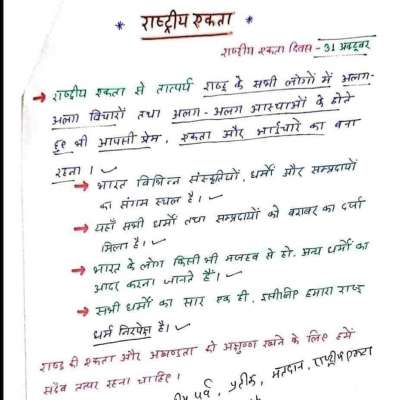 * राष्ट्रीय एकता *
राष्ट्रीय एकता दिवस - 31 अक्टूबर
→ राष्ट्रीय एकता से तात्पर्य राष्ट्र के सभी लोगों में अलग-
अलग विचारों तथा अलग-अलग आस्थाओं के होते
हुए भी आपसी प्रेम, एकता और भाईचारे का बना
रहना।
→ भारत विभिन्न संस्कृतियों, धर्मों और सम्प्रदायों
का संगम स्थल है।
→ यहाँ सभी धर्मों तथा सम्प्रदायों को बराबर का दर्जा
मिला है।
→ भारत के लोग किसी भी मजहब से हो, अन्य धर्मों का
आदर करना जानते हैं।
→ सभी धर्मों का सार एक ही, इसीलिए हमारा राष्ट्र
धर्म निरपेक्ष है।
राष्ट्र की एकता और अखण्डता को अक्षुण्ण रखने के लिए हमें
सदैव तत्पर रहना चाहिए।
पर्व, प्रतीक, मतदान, राष्ट्रीय